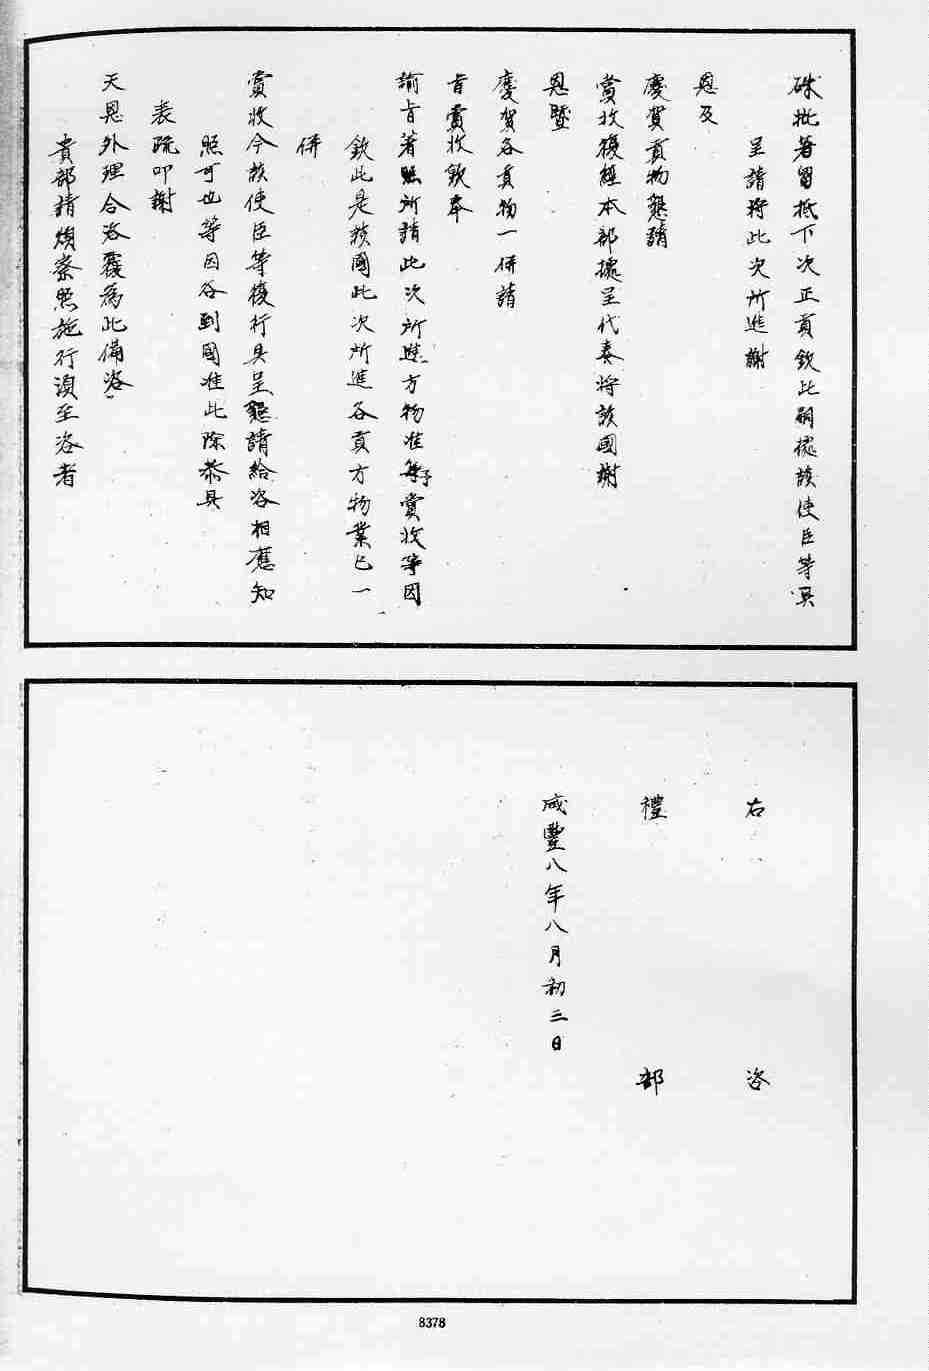 硃批著留抵下次正貢欽此嗣據該使臣等具
呈請將此次所進謝
恩及
慶賀貢物懇請
賞收復經本部據呈代奏將該國謝
恩暨
慶賀各貢物一併請
旨賞收欽奉
諭旨著照所請此次所進方物准予賞收等因
欽此是該國此次所進各貢方物業已一
併
賞收今該使臣等復行具呈懇請給咨相應知
照可也等因咨到國准此除恭具
表疏叩謝
天恩外理合咨覆為此備咨
貴部請煩察照施行須至咨者
右咨
禮部
咸豐八年八月初三日
8378